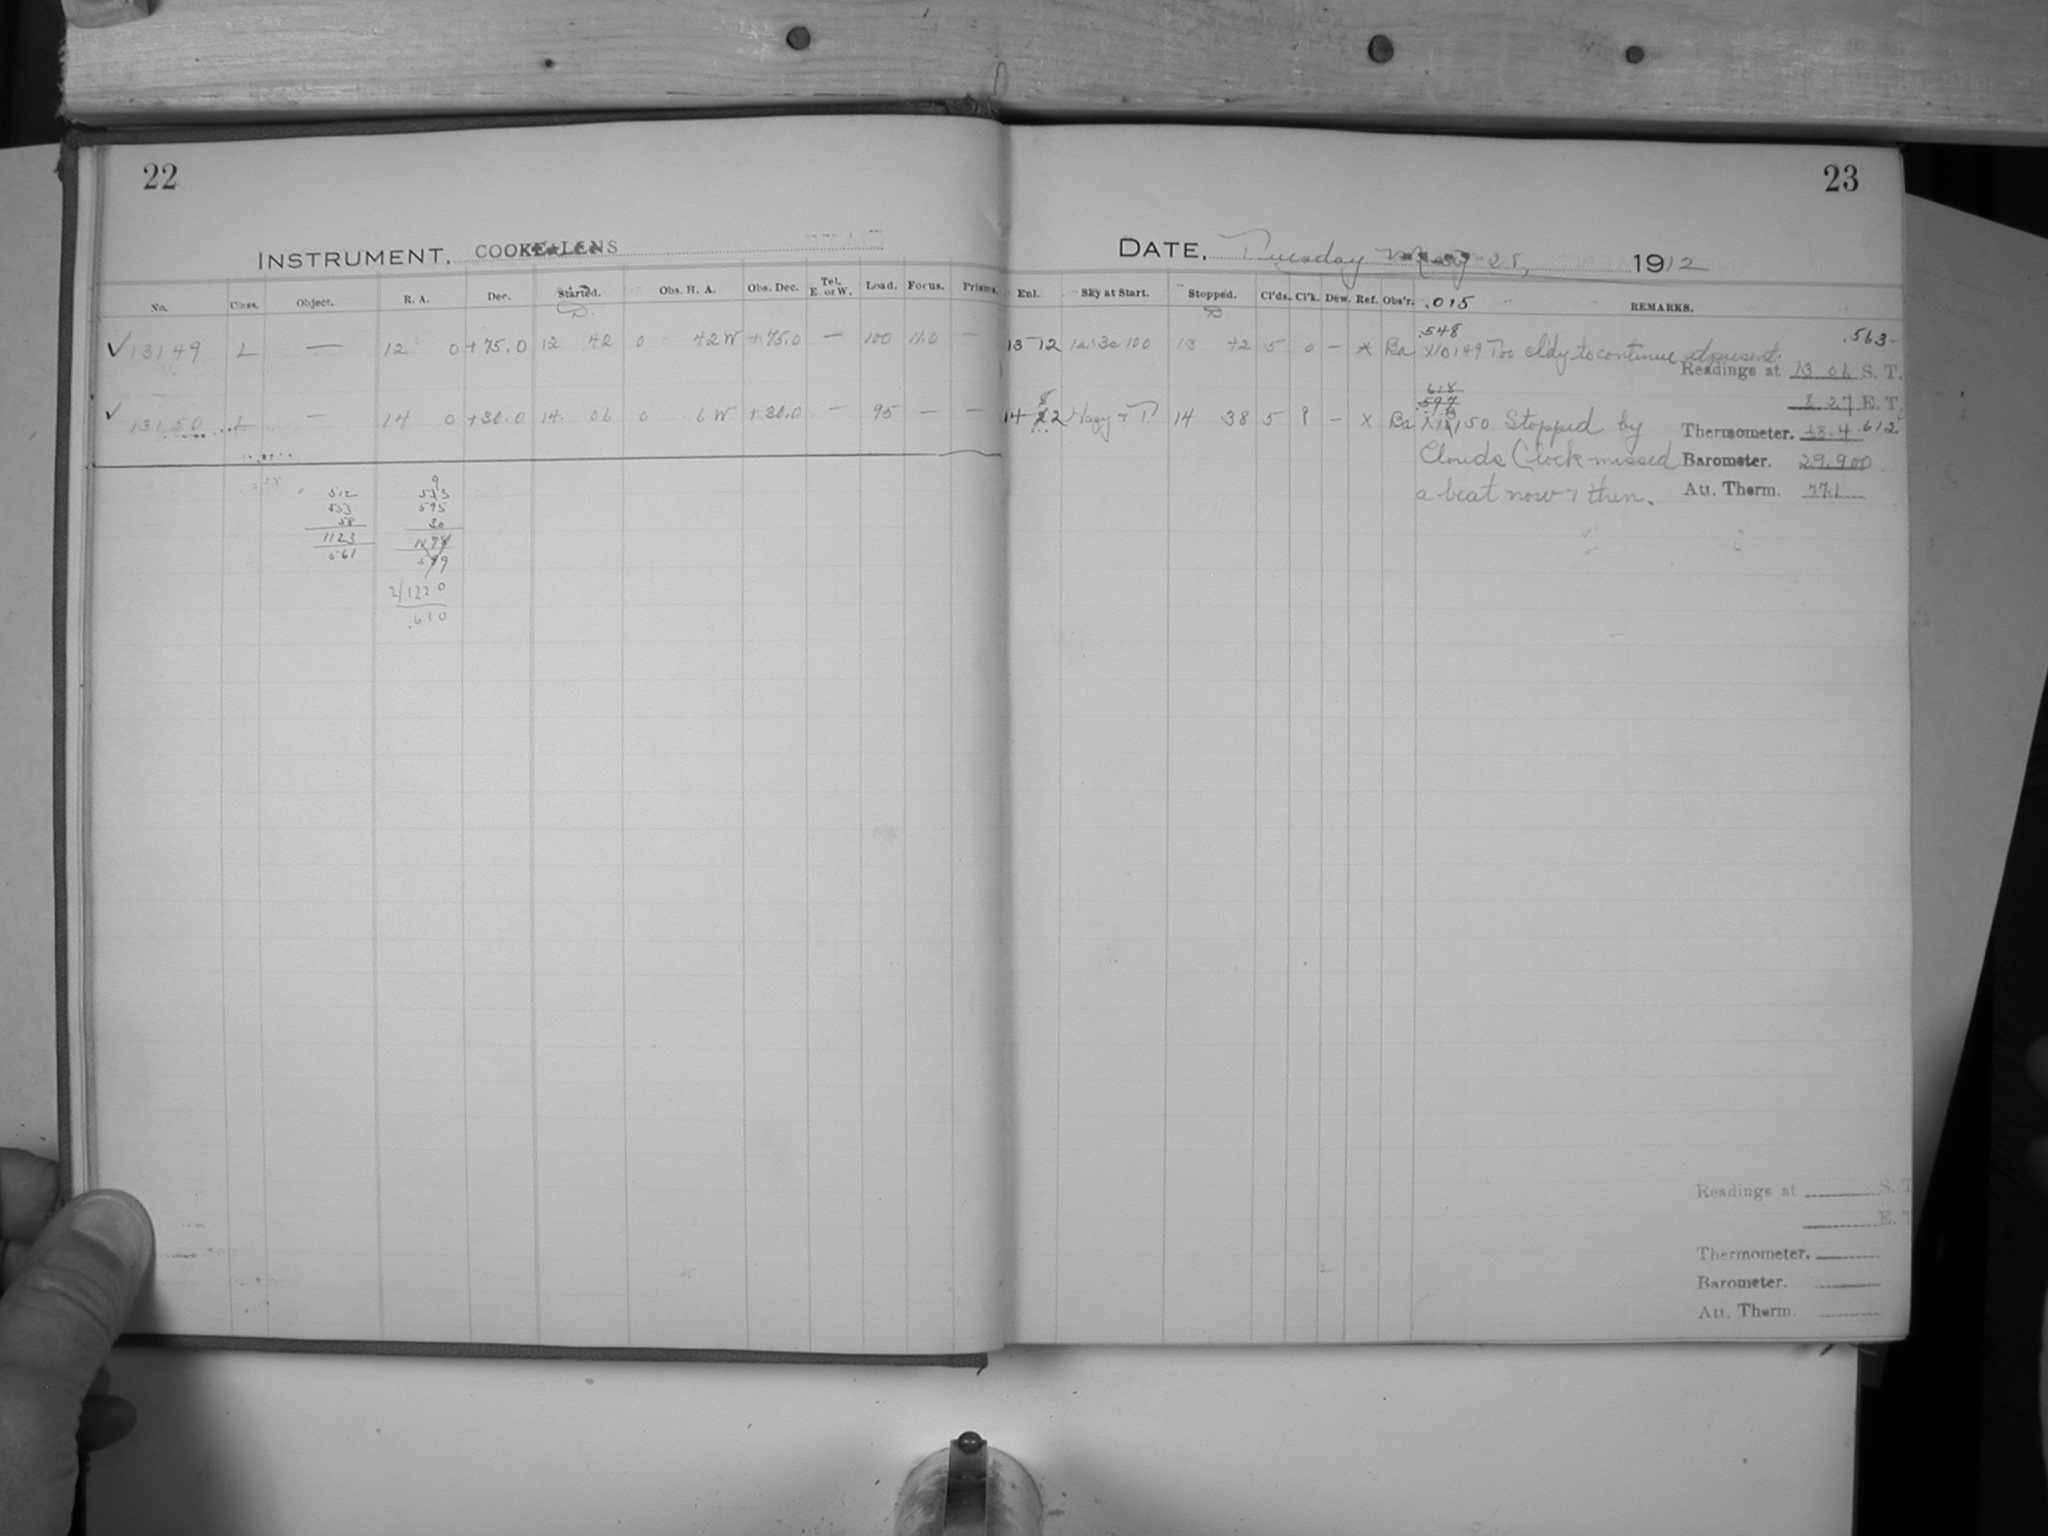 22
INSTRUMENT, COOKE LENS
No. Class. Object. R. A. Dec. Started. Obs. H. A. Obs. Dec. Tel. E. or W. Load. Focus. Prisms.
✓ 13149 L — 12 0 +75.0 12 42 0 42W +75.0 — 100 11.0 —
✓ 13150 L — 14 0 +30.0 14 06 0 6W +30.0 — 95 — —
512
533
58
1123
561
9
595
30
2/1220
.610
23
DATE, Tuesday May 28, 1912
Enl. Sky at Start. Stopped. Cl'ds. Cl'k. Dew. Ref. Obs'r. .015 REMARKS.
.548 .563
13 12 100 13 42 5 0 — x Ba X10149 Too cl'dy to continue at present.
Readings at 13 06 S. T.
8 27 E. T.
618
597
14 22 Hazy + 14 38 5 — x Ba 150 Stopped by
Thermometer. .612
Clouds Clock missed
Barometer. 29.900
a beat now + then.
Att. Therm. 77.1
Readings at S. T.
E. T.
Thermometer.
Barometer.
Att. Therm.